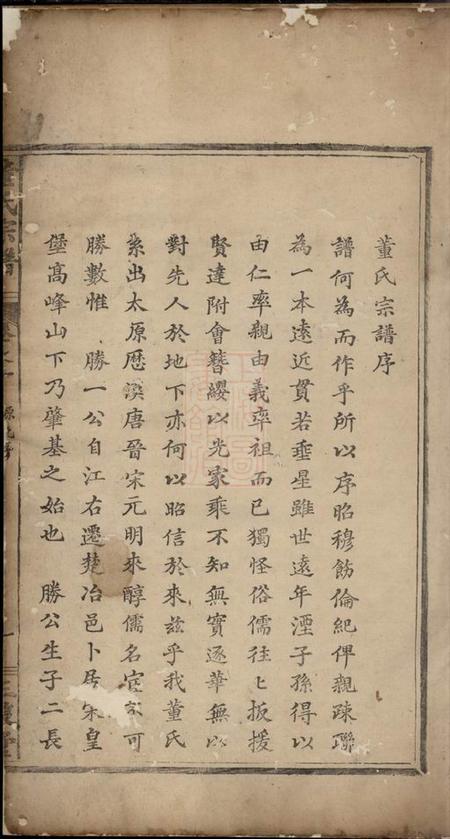 董氏宗譜序
譜何為而作乎所以序昭穆飭倫紀俾親疎聯
為一本遠近貫若垂星雖世遠年湮子孫得以
由仁率親由義率祖而已獨怪俗儒往匕扳援
賢達附會簪纓以光家乘不知無實逐華無以
對先人於地下亦何以昭信於來兹乎我董氏
系出太原歴漢唐晉宋元明來醇儒名宦 可
勝數惟 勝一公自江右遷楚冶邑卜居宋皇
堡高峰山下乃肇基之始也 勝公生子二長
氏宗譜